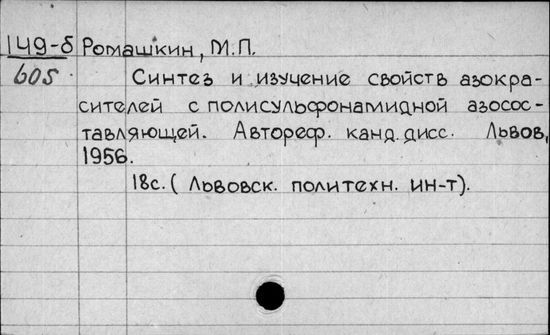 149-б Ромашкин, М.П.
605
Синтез и изучение свойств азокра-
сителей с полисульфонамидной азосос-
тавляющей. Автореф. канд. дисс. Львов,
1956.
18с. (Львовск. политехн. ин-т).